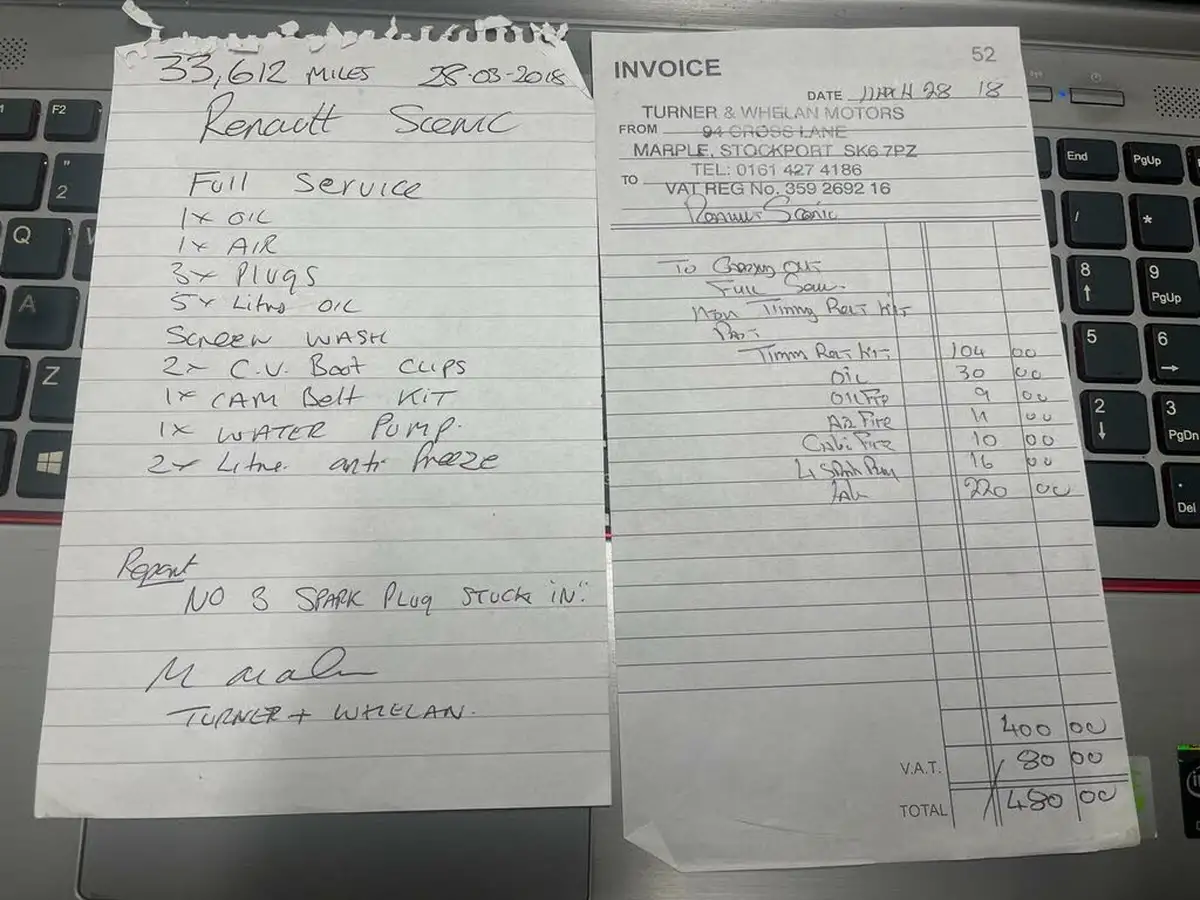 33,612 MILES 28-03-2018
Renault Scenic
Full Service
1x OIL
1x AIR
3x Plugs
5x Litre OIL
SCREEN WASH
2x C.V. Boot CLIPS
1x CAM Belt KIT
1x WATER PUMP.
2x Litre anti freeze
Report
NO 3 SPARK PLUG STUCK IN
TURNER + WHELAN.
INVOICE
52
DATE 28 18
TURNER & WHELAN MOTORS
FROM 94 CROSS LANE
MARPLE, STOCKPORT SK6 7PZ
TEL: 0161 427 4186
TO
VAT REG No. 359 2692 16
Scenic
To
Full
Timing Belt Kit
Kit 104 00
OIL 30 00
9 00
11 00
10 00
4 16 00
220 00
400 00
V.A.T. 80 00
TOTAL 480 00
F2
2
Q
A
Z
End
PgUp
/
*
8
9
PgUp
5
6
2
3
PgDn
.
Del